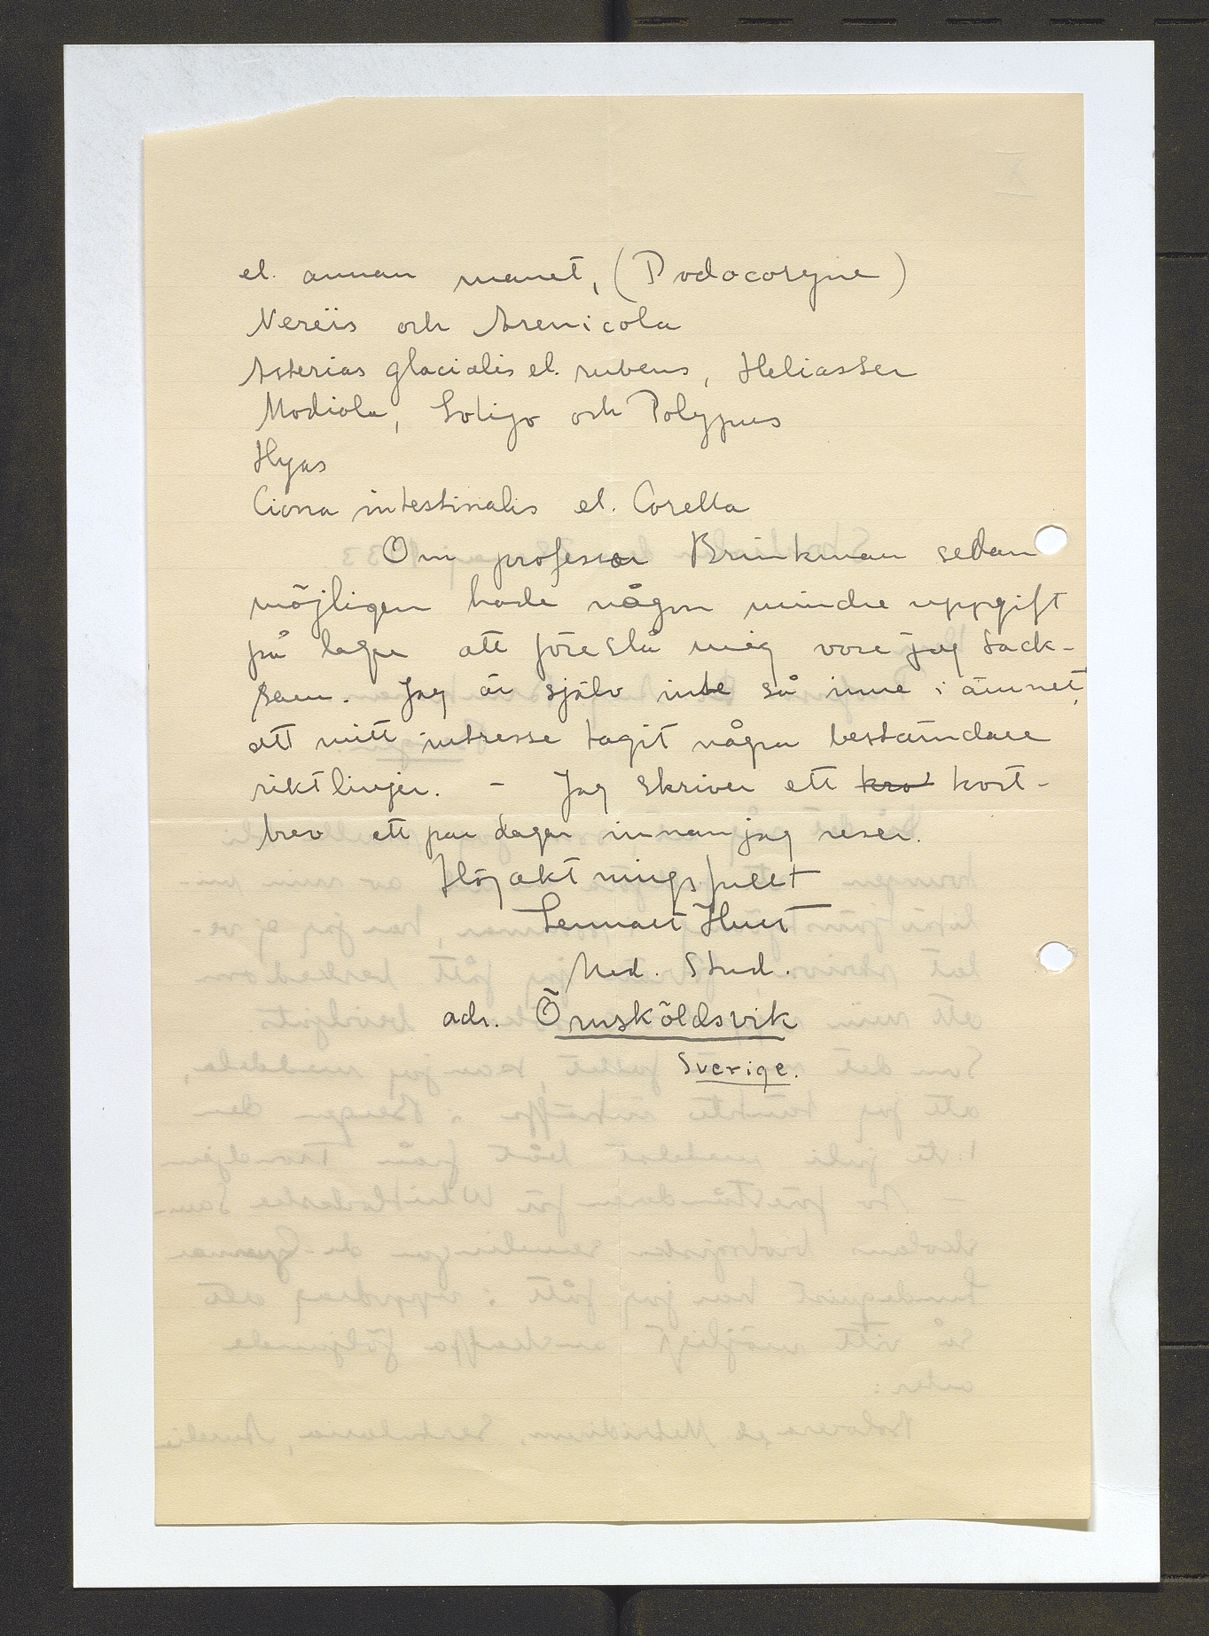 el. annan manet, (Podocoryne)
Nereis och Arenicola
Asterias glacialis el. rubens, Heliaster
Modiola, Loligo och Polypus
Hyas
Ciona intestinalis el. Corella
Om professor Brinkman sedan
möjligen hade någon mindre uppgift
på lager att föreslå mig vore jag tack-
sam. Jag är själv inte så inne i ämnet,
att mitt intresse tagit några bestämdare
riktlinjer. - Jag skriver ett kro kort-
brev ett par dagar innan jag reser.
Högaktningsfullt
Lennart
Med. Stud.
adr. Örnsköldsvik
Sverige.